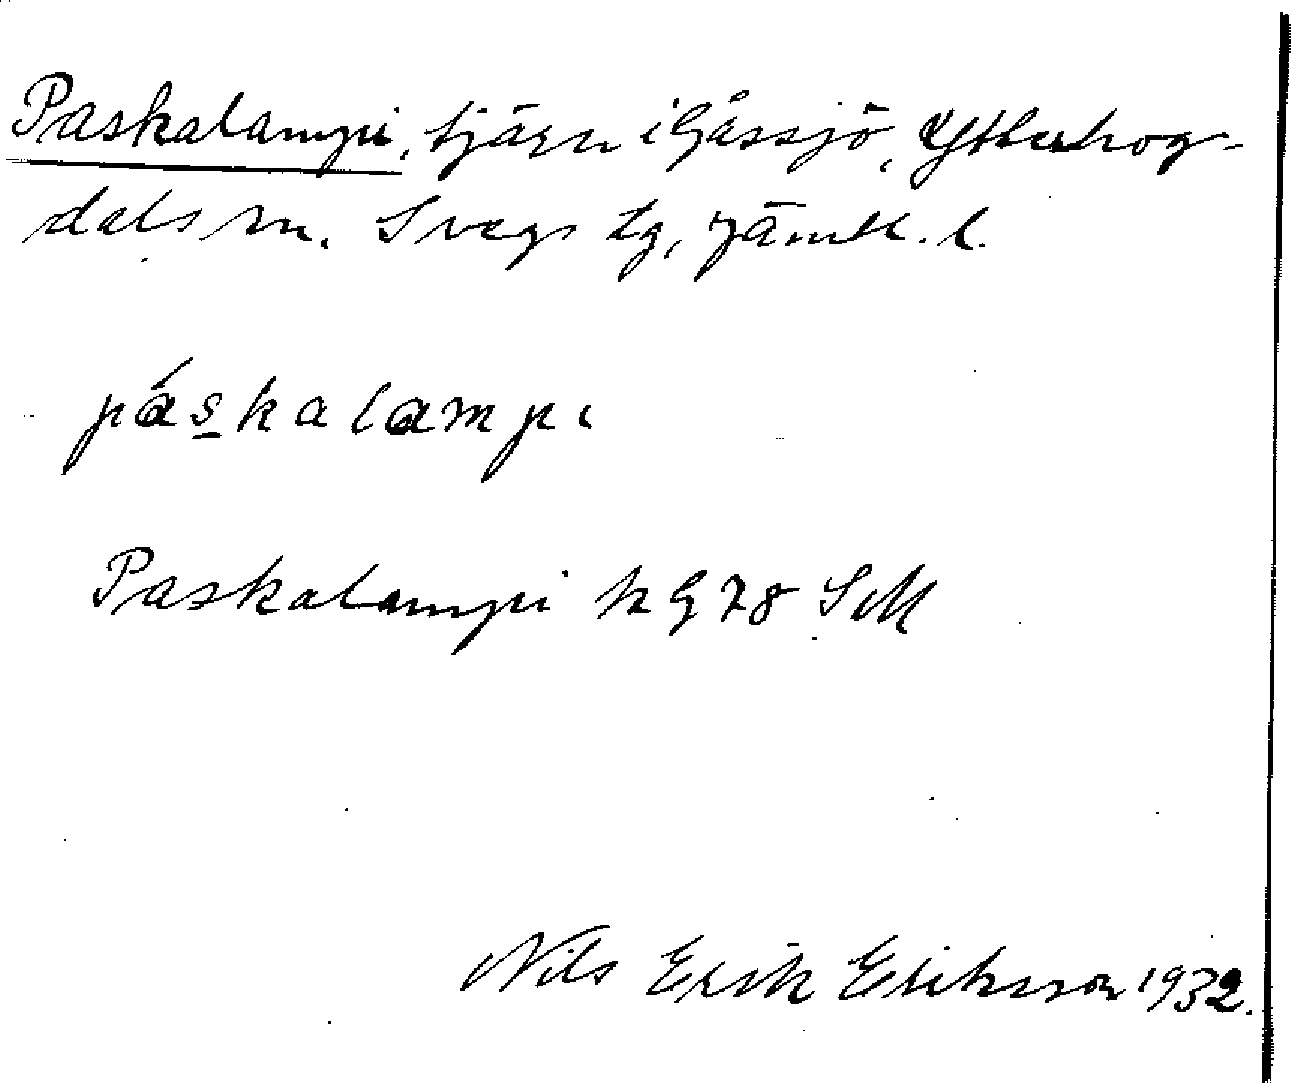 Paskalampi, tjärn i Gåssjö, Ytterhog-
dals sn. Svegs tg, Jämtl. l.
páskalampi
Paskalampi k G 78 SM
Nils Erik Eriksson 1932.